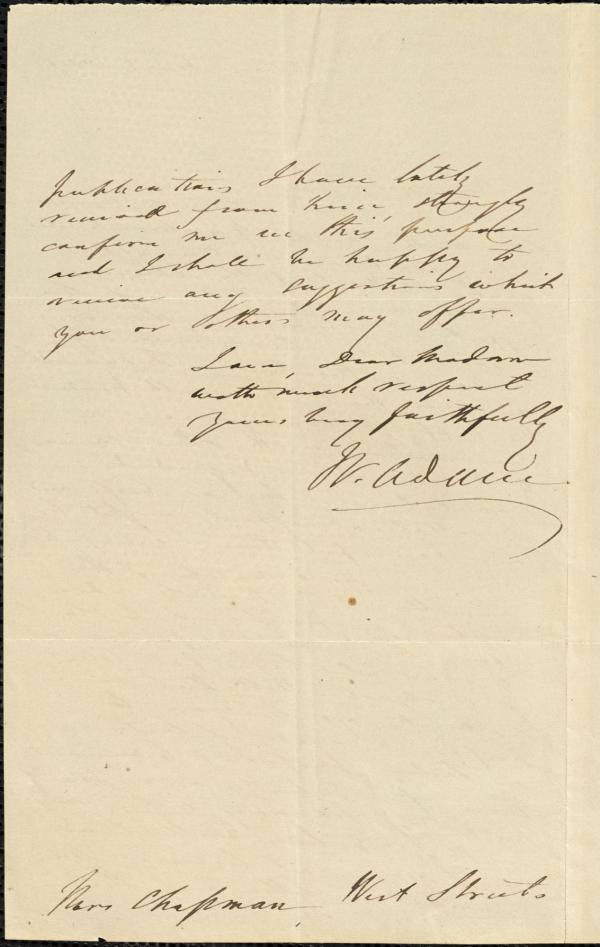 publications I have lately
received from thence strongly
confirm me in this purpose
and I shall be happy to
receive any suggestions which
you or others may offer.
I am, Dear Madam
with much respect
yours very faithfully
W. Adam
Mrs Chapman, West Street